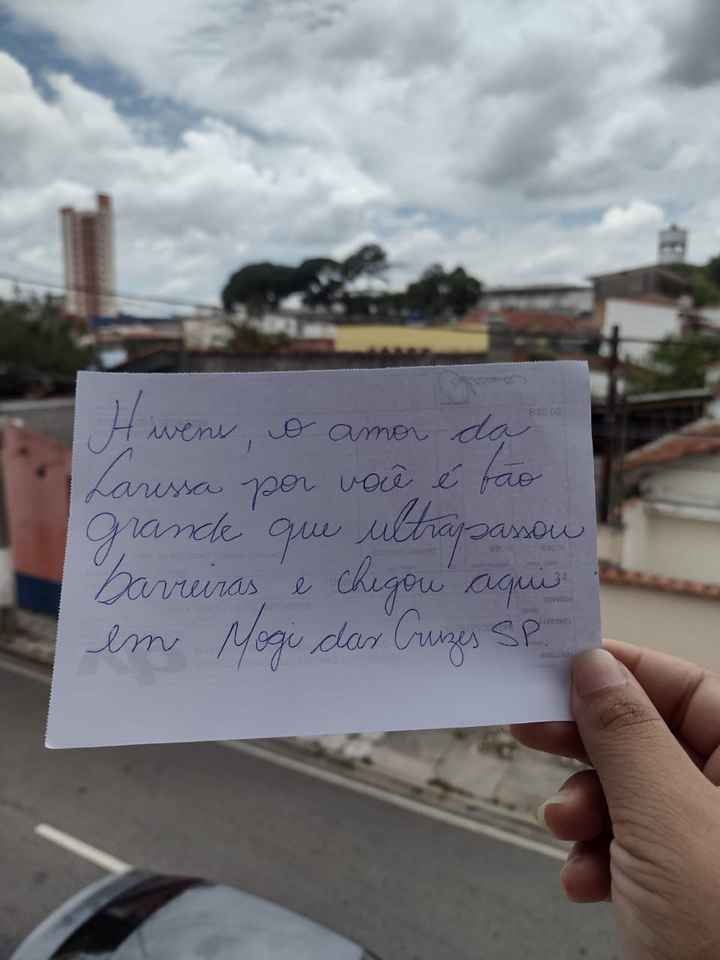 Hivens, o amor da
Larissa por você é tão
grande que ultrapassou
barreiras e chegou aqui
em Mogi das Cruzes SP.